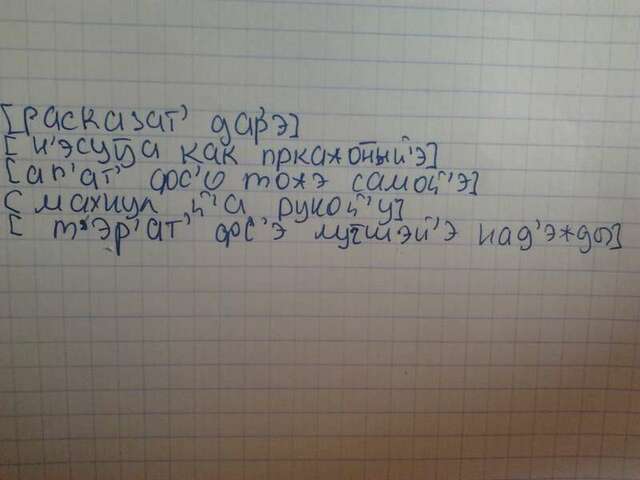 [расказат' дар'э]
[н'эсуца как пркажоный'э]
[ап'ат' фс'о тожэ самой'э]
[махнул й'а рукой'у]
[т'эр'ат' фс'э лучшэй'э над'эжды]